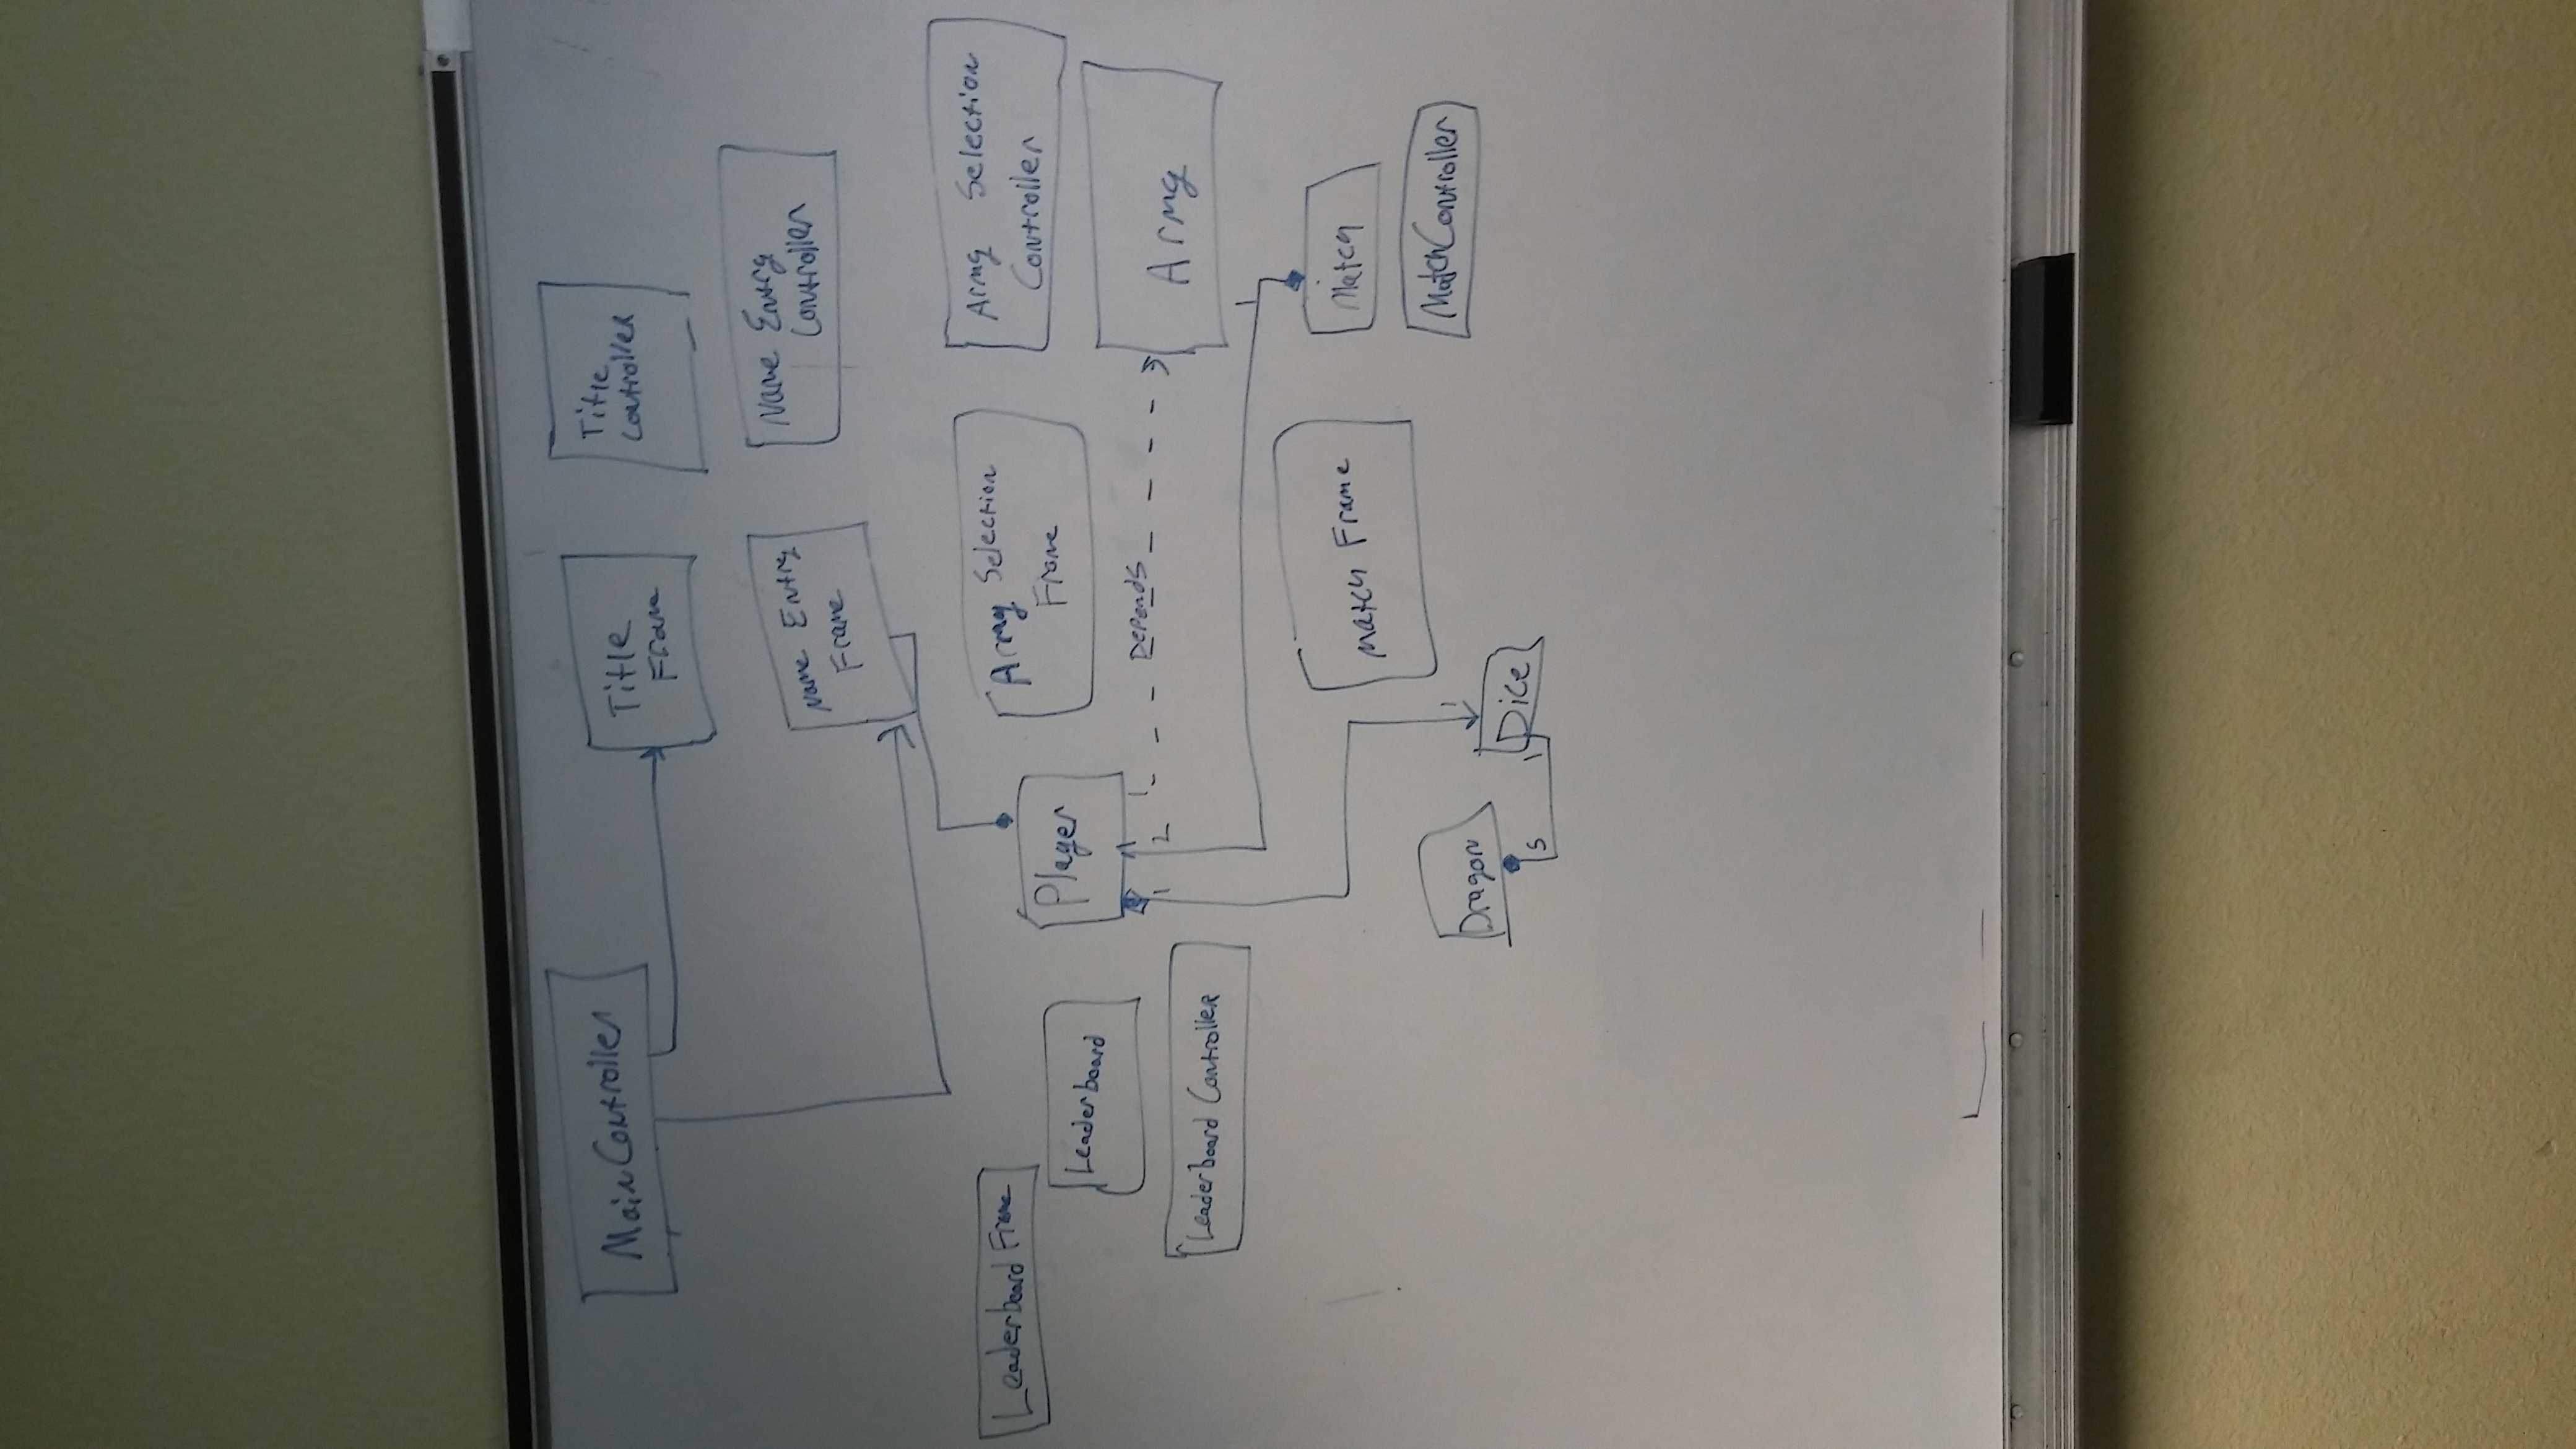 MainController
Title
Frame
Title
Controller
Name Entry
Frame
Name Entry
Controller
Leaderboard Frame
Leaderboard
Leaderboard Controller
Player
Army Selection
Frame
Army Selection
Controller
1
2
1
Depends
Army
1
Match Frame
Match
MatchController
Dragon
5
1
1
Dice